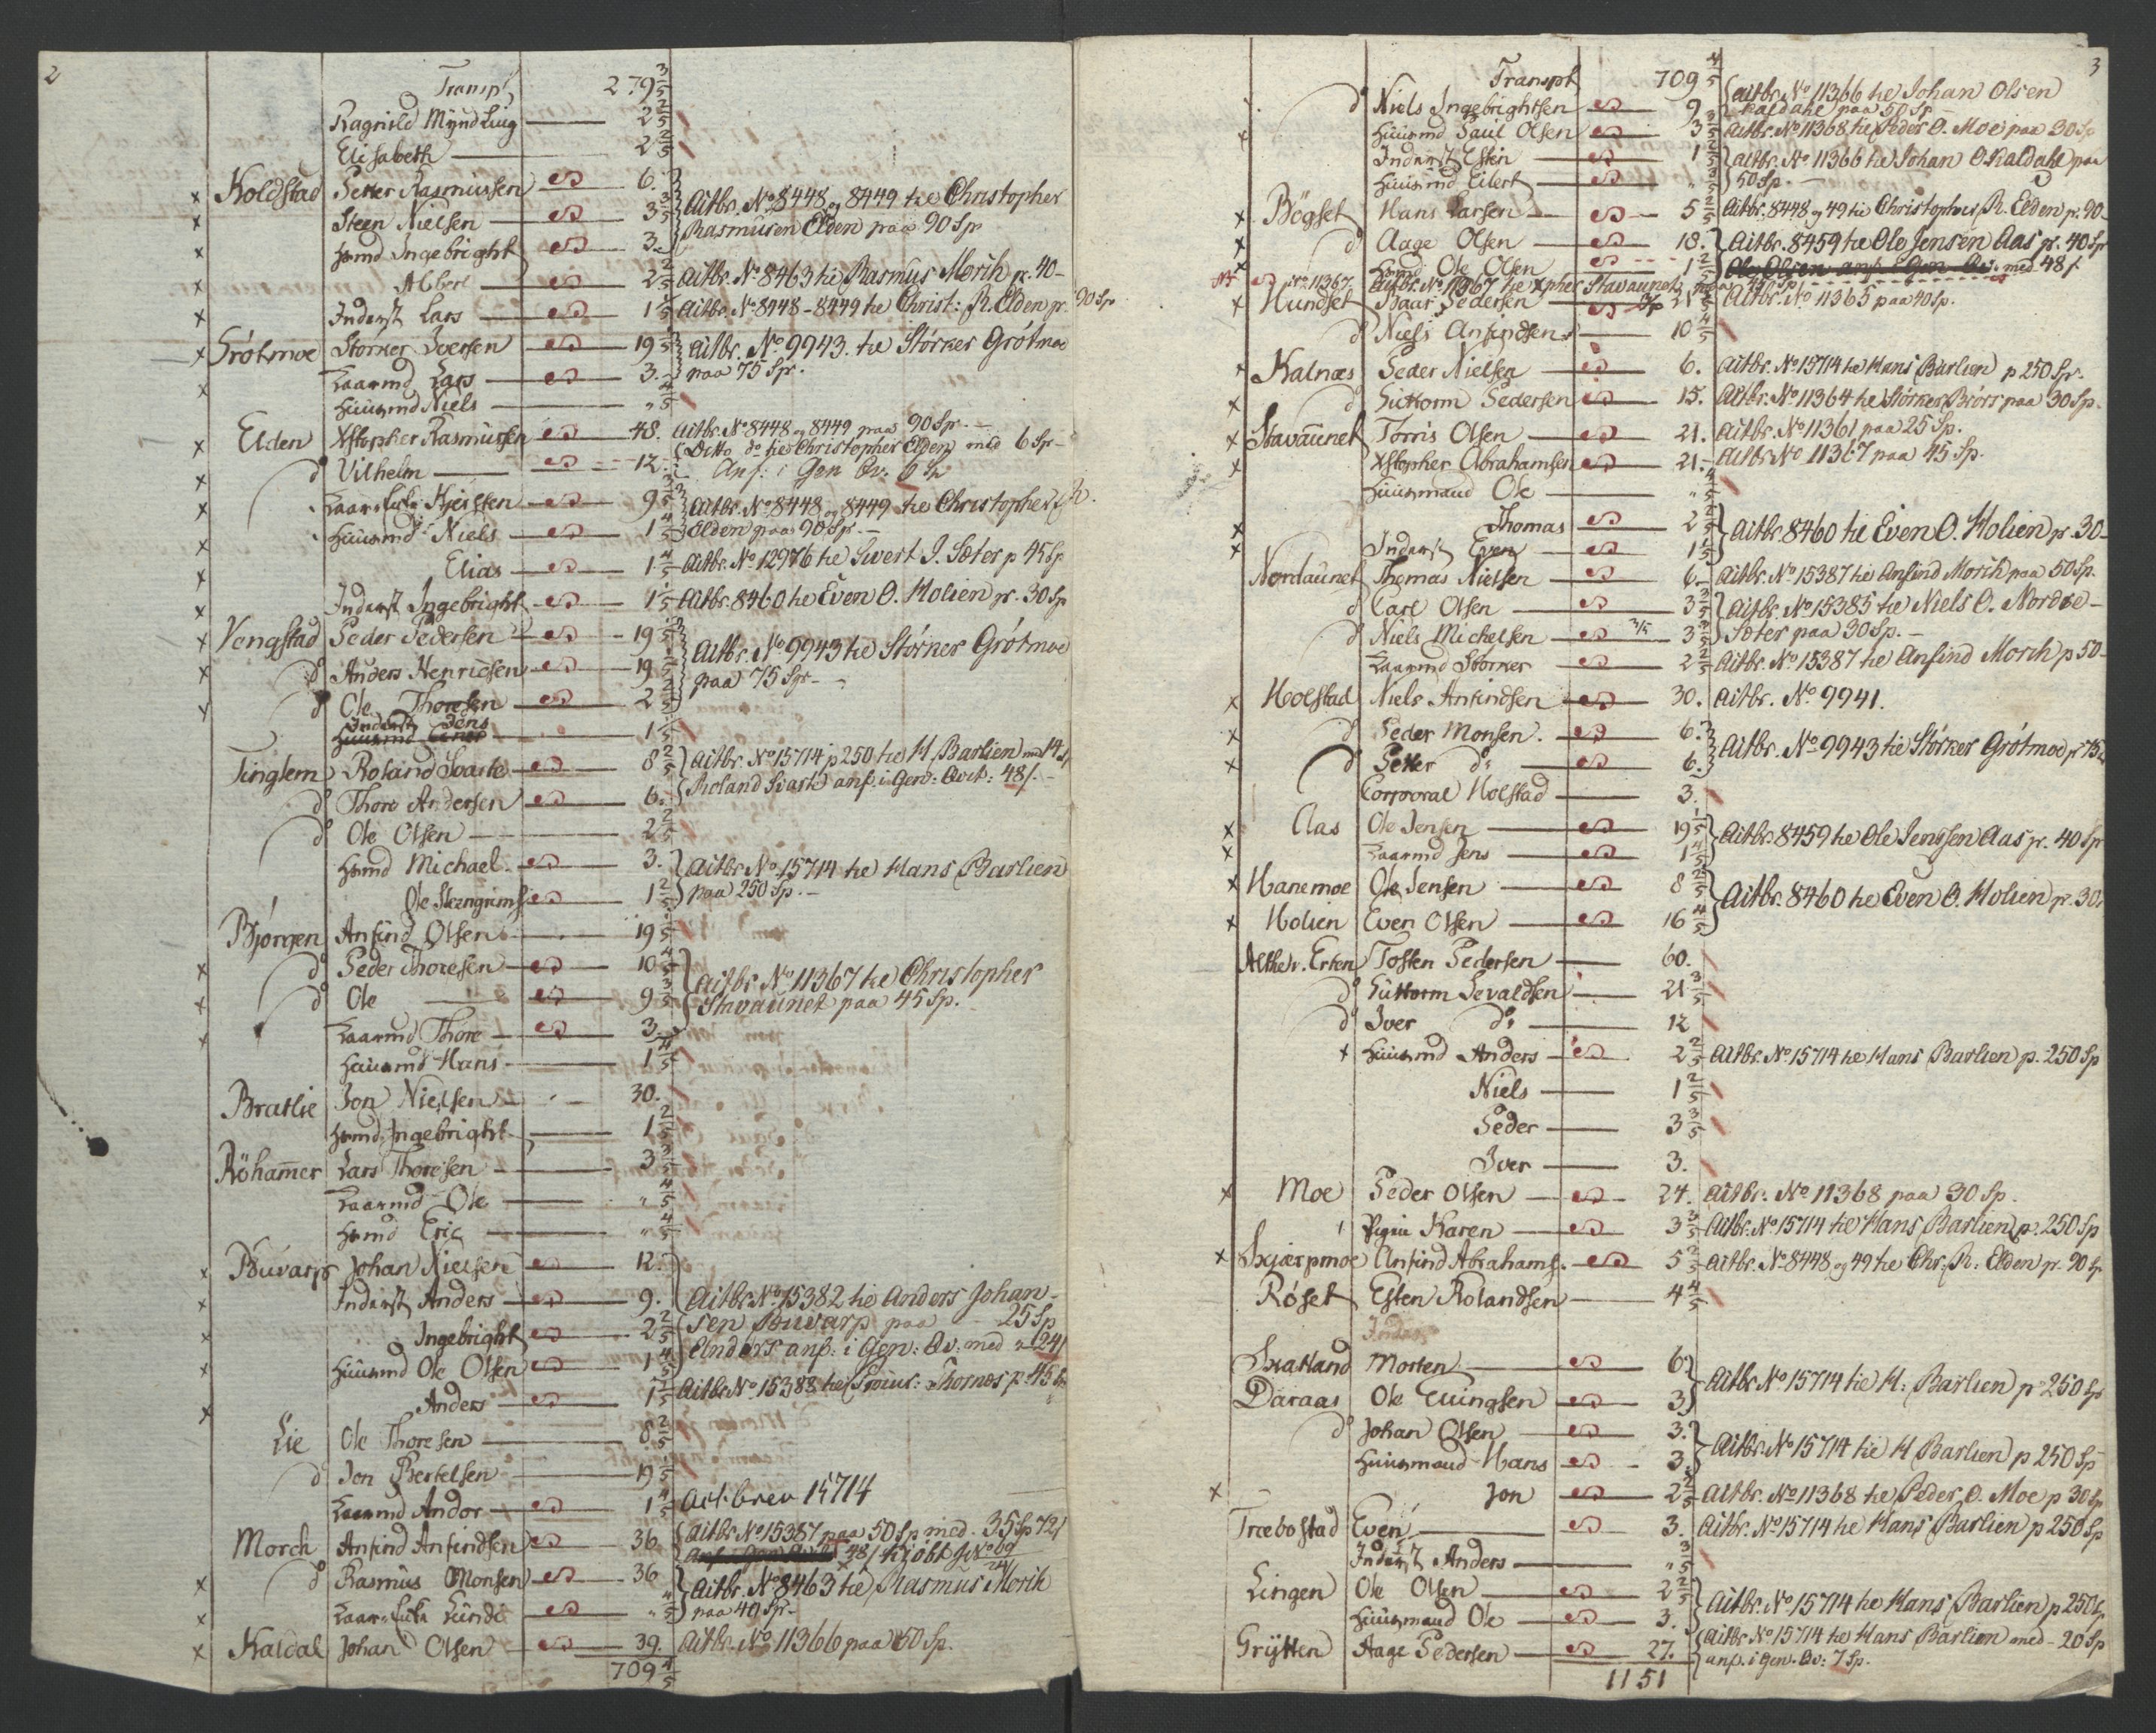 2
Transpt 279 3/5
Ragnild Myndling 2 2/5
Elisabeth 2 2/5
x Koldstad Petter Rasmussen 6.
x Steen Nielsen 3 3/5 Aitbr. No 8448 og 8449 til Christopher
x Hmd Ingebright 3. Rasmusen Elden paa 90 Sp
x Albert 2 2/5 Aitbr. No 8463 til Rasmus Morih p. 40-
x Inderst Lars 1 1/5 Aitbr. No 8448-8449 til Christ: R. Elden pr. 90 Sp
x Grótmoe Størker Iversen 19 1/5 Aitbr. No 9943. til Stórker Grótmoe
x Laarmd Lars 3. paa 75 Spr.
Huusmd Niels " 4/5
x Elden Xstopher Rasmussen 48. Aitbr. No 8448 og 8449 paa 90 Spr.
(Ditto do til Christopher Elden med 6 Spr-
x do Vilhelm 12. Anf: i Gen Qv. 6 Sp
x Kiersten 9 3/5 Aitbr. No 8448 og 8449 til Christopher R.
x Huusmd Niels 1 4/5 Elden paa 90 Spr.-
x Elias 1 4/5 Aitbr. No 12976 til Sivert I. Sæter p 45 Sp
x Inderst Ingebright 1 1/5 Aitbr. 8460 til Even O. Holien pr. 30 Sp
x Vengstad Peder Pedersen 19 1/5
x do Anders Henricsen 19 1/5 Aitbr. No 9943 til Stórker Grótmoe
x do Ole Thoresen 2 2/5 paa 75 Spr-
Inderst Jens
Huusmd 1 1/5
Tinglem Roland Svarte 8 2/5 Aitbr. No 15714 p 250 til H. Barlien med
Roland Svarte anf. i Gen: Qvit: 48/.-
do Thore Andersen 6.
do Ole Olsen 2 2/5
Hmd Michael 3. Aitbr. No 15714 til Hans Barlien
Ole Steengrimsen 1 2/5 paa 250 Sp.-
Bjórgen Anfind Olsen 19 1/5
x do Peder Thoresen 10 4/5 Aitbr. No 11367 til Christopher
x do Ole 9 3/5 Stavaunet paa 45 Sp.
x Laarmd Thore 3.
Huusmd Hans 1 4/5
Bratlie Jon Nielsen 30.
Hmd Ingebright 1 2/5
Röhamer Lars Thoresen 3 3/5
Laarmd Ole " 4/5
Hmd Eric " 4/5
x Buvarp Johan Nielsen 12.
x Inderst Anders 9. Aitbr. No 15382 til Anders Johan-
x Ingebright 2 2/5 sen Buvarp paa - 25 Sp
x Huusmd Ole Olsen 1 4/5 Anders anf: i Gen: Qv: med " 24/
x Anders 1 1/5 Aitbr. No 15388 til Thornes p 45 Sp
Lie Ole Thoresen 8 2/5
do Jon Bertelsen 19 1/5
Laarmd Andor 1 4/5 Ait:brev 15714
Morch Anfind Anfindsen 36. Aitbr. No 15387 paa 50 Sp. med. 35 Sp 72/
48/ kjöbt
x do Rasmus Monsen 36 Aitbr. No 8463 til Rasmus Morih
x " 4/5 paa 40 Spr-
x Kaldal Johan Olsen 39. Aitbr. No 11366 paa 50 Sp.
709 4/5
3
Transpt 709 4/5
x do Niels Ingebrightsen 9 Aitbr. No 11366 til Johan Olsen
Kaldahl paa 50 Sp
x Huusmd Paul Olsen 3 3/5 Aitbr. No 11368 til Peder O. Moe paa 30 Sp
Inderst Esten 1 2/5 Aitbr. No 11366 til Johan O Kaldahl paa
Huusmd Eilert " 50 Sp.-
x Bögset Hans Larsen 5 2/5 Aitbr. 8448 og 49 til Christopher R. Elden p. 90-
x do Aage Olsen 18. Aitbr. 8459 til Ole Jensen Aas pr. 40 Sp
x Hmd Ole Olsen 1 2/5 Ole Olsen anf. i Gen Qv. med 48/.
No 11367. Aitbr. No 11367 til Xpher Stavaunet
x Hundset Baar Pedersen 21 Aitbr. No 11365 paa 40 Sp.
do Niels Anfindsen 10 4/5
x Kalnæs Peder Nielsen 6. Aitbr. No 15714 til Hans Barlien p 250 Spr.
x do Guttorm Pedersen 15. Aitbr. No 11364 til Størker Biórs paa 30 Sp.
x Stavaunet Torris Olsen 21. Aitbr. No 11361 paa 25 Sp.
x Xstopher Abrahamsen 21. Aitbr No 11367 paa 45 Sp.
Huusmand Ole " 4/5
x Thomas 2 2/5 Aitbr. 8460 til Even O. Holien pr. 30-
x Inderst Even 1 1/5
Nordaunet Thomas Nielsen 6. Aitbr. No 15387 til Anfind Morih paa 50 Sp.
do Carl Olsen 3 3/5 Aitbr. No 15385 til Niels O. Nordre-
do Niels Michelsen 3 3/5 Sæter paa 30 Sp.-
Laarmd Storker 2 2/5 Aitbr. No 15387 til Anfind Morih p 50-
x Holstad Niels Anfindsen 30. Aitbr. No 9941.
x do Peder Monsen. 6. Aitbr. No 9943 til Stórker Grótmoe p 75
x do Petter do 6.
Corporal Holstad 3.
x Aas Ole Jensen 19 1/5 Aitbr. 8459 til Ole Jenssen Aas pr. 40 Sp
x Laarmd Jens 1 4/5
x Hanemoe Ole Jensen 8 2/5 Aitbr. 8460 til Even O. Holien pr. 30.
x Holien Even Olsen 16 4/5
Alther. Erten Tosten Pedersen 60.
do Guttorm Sevaldsen 21 3/5
do Iver do 12
x Huusmd Anders 2 2/5 Aitbr. No 15714 til Hans Barlien p. 250 Sp
Niels 1 2/5
Peder 3 3/5
Iver 3.
x Moe Peder Olsen 24. Aitbr. No 11368 paa 30 Sp.
Pigen Karen 3 3/5 Aitbr. No 15714 til Hans Barlien p. 250 Sp
x Skjærpmoe Anfind Abrahams. 5 2/5 Aitbr. No 8448 og 49 til Chr. R. Elden pr. 90 Sp
Róset Esten Rolandsen 4 4/5
Skatland Morten 6 Aitbr. No 15714 til H: Barlien p 250 Sp
Daraas Ole Evingsen 3
do Johan Olsen 3. Aitbr. No 15714 til H Barlien p 250 Sp
Huusmand Hans 3
x Jon 2 2/5 Aitbr. No 11368 til Peder O. Moe p 30 Sp
Træbostad Even 3. Aitbr. No 15714 til Hans Barlien p 250 Sp
Inderst Anders " 3/5
Lingen Ole Olsen 2 2/5 Aitbr. No 15714 til Hans Barlien p 250 Sp
Huusmand Ole 3.
Grÿtten Aage Pedersen 27. Aitbr. No 15714 til Hans Barlien med - 20 Sp
anf. i Gen. Qv: 7 Sp.
1151